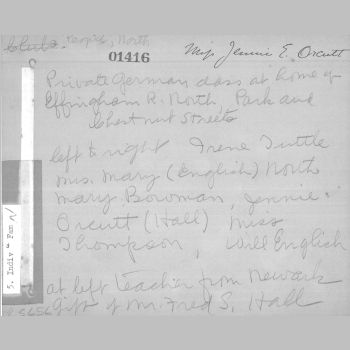 Clubs. People, North
Miss Jennie E. Orcutt
01416
Private German class at home of
Effingham R. North, Park and
Chestnut Streets
left to right Irene Tuttle
Mrs. Mary (English) North
Mary Bowman, Jennie
Orcutt (Hall) Miss
Thompson, Will English
at left teacher from Newark
Gift of Mr. Fred S. Hall
5. Indiv